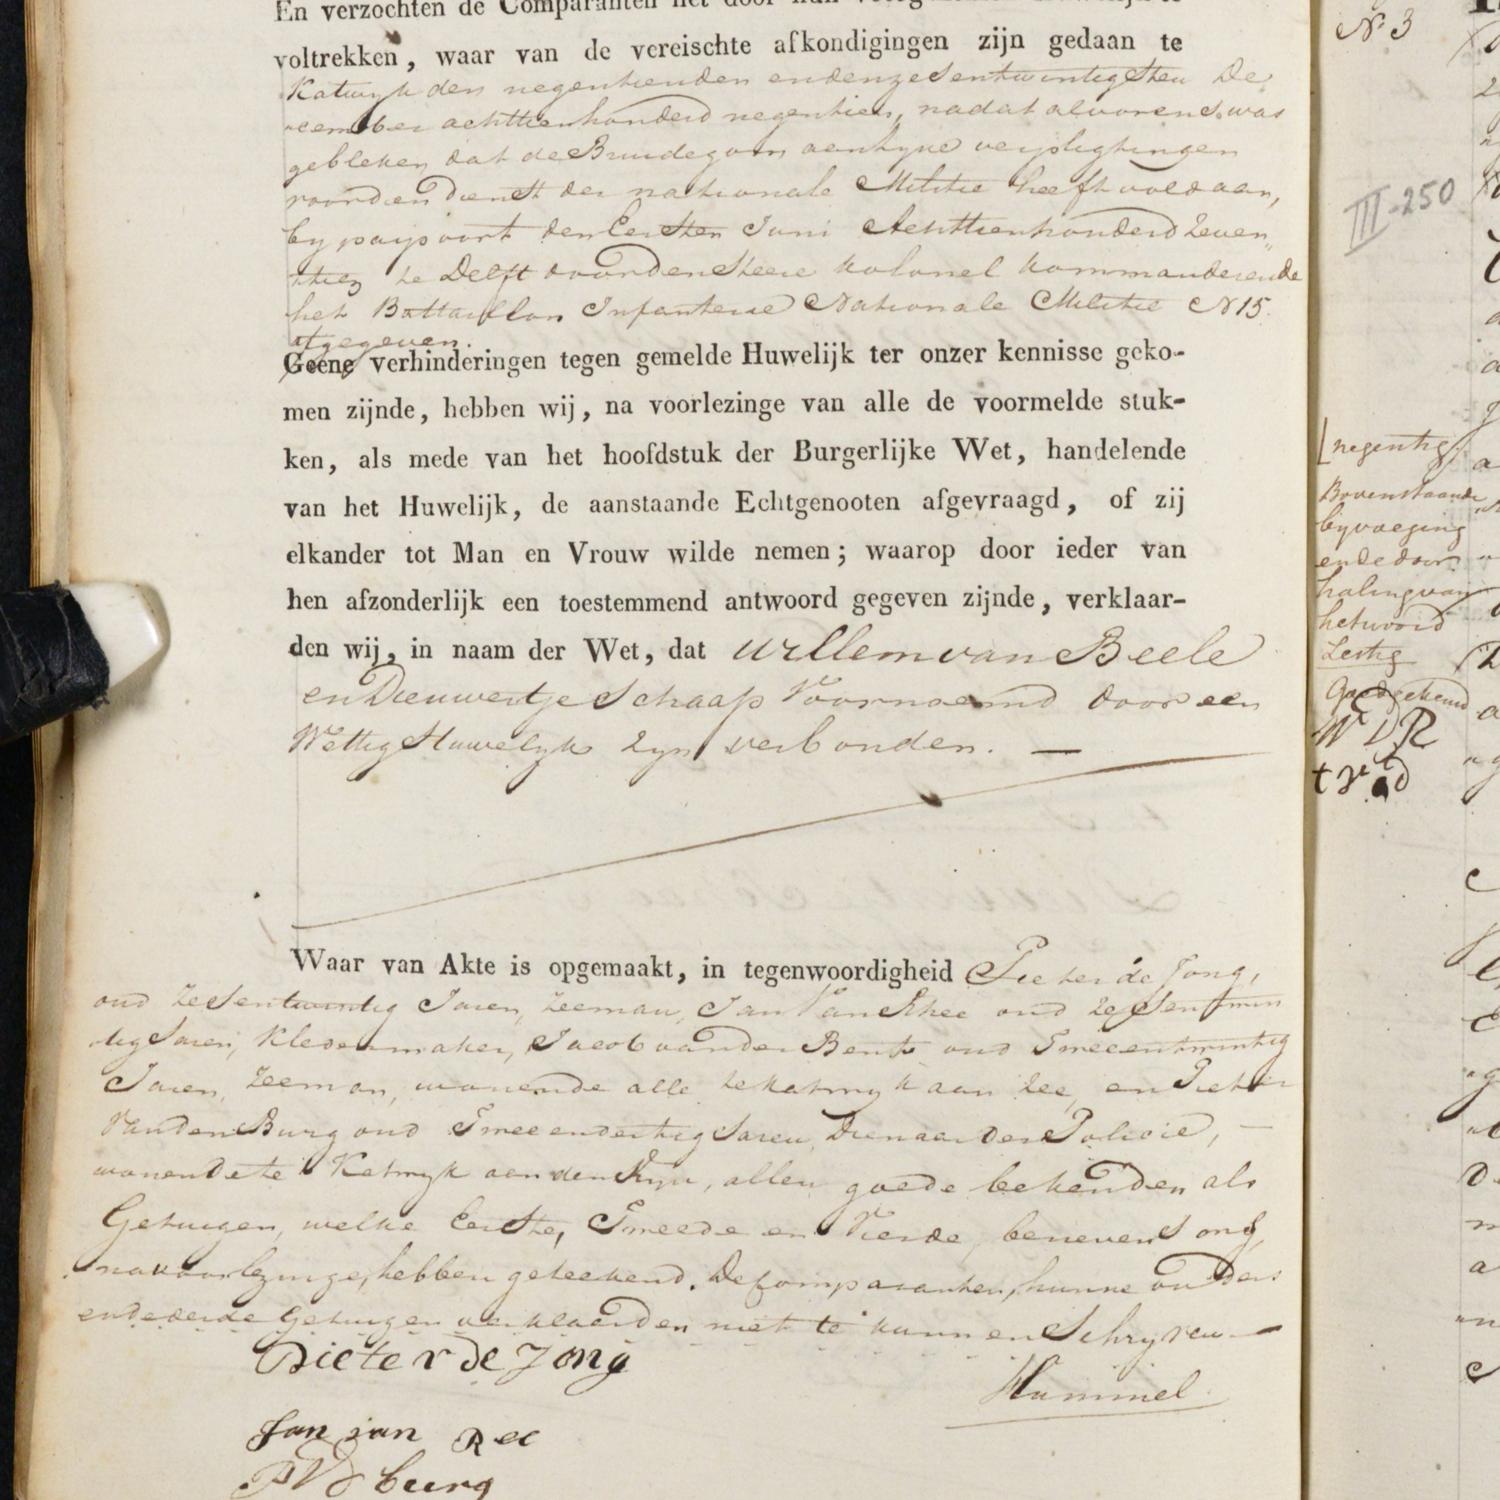 En verzochten de Comparanten het door hun
voltrekken, waar van de vereischte afkondigingen zijn gedaan te
Katwyk den negentienden en den zesentwintigsten De
cember achttienhonderd negentien, nadat alvorens was
gebleken dat de Bruidegom aan zyne verpligtingen
voor den dienst der nationale Militie heeft voldaan,
by paspoort den Eersten Juni Achttienhonderd Zeven„
thien te Delft door den Heere kolonel kommanderende
het Battaillon Infanterie Nationale Militie N 15.
afgegeven.
Geene verhinderingen tegen gemelde Huwelijk ter onzer kennisse geko-
men zijnde, hebben wij, na voorlezinge van alle de voormelde stuk-
ken, als mede van het hoofdstuk der Burgerlijke Wet, handelende
van het Huwelijk, de aanstaande Echtgenooten afgevraagd, of zij
elkander tot Man en Vrouw wilde nemen; waarop door ieder van
hen afzonderlijk een toestemmend antwoord gegeven zijnde, verklaar-
den wij, in naam der Wet, dat Willem van Beele
en Dieuwertje Schaap Voornoemd door een
Wettig Huwelyk zyn verbonden. —
Waar van Akte is opgemaakt, in tegenwoordigheid Pieter de Jong,
oud Zesentwintig Jaren, Zeeman, Jan Van Rhee oud Zesentwin
tig Jaren, Kledermaker, Jacob van der Bent oud Tweeentwintig
Jaren, Zeeman, wonende alle te Katwyk aan Zee, en Pieter
Van den Burg oud Twee en dertig Jaren, Dienaar der Policie, —
wonende te Katwyk aan den Rhyn, allen goede bekenden als
Getuigen, welke Eerste, Tweede en Vierde, benevens ons,
na voorlezinge, hebben geteekend. De Comparanten, hunne ouders
en de derde Getuigen verklaarden niet te kunnen Schryven —
Pieter de Jong
Hammel
Jan van Ree
P V d burg
N 3
III-250
negentig
Bovenstaande
byvoeging
en de door
haling van
het woord
Zestig
Goedgekeurd
W D R